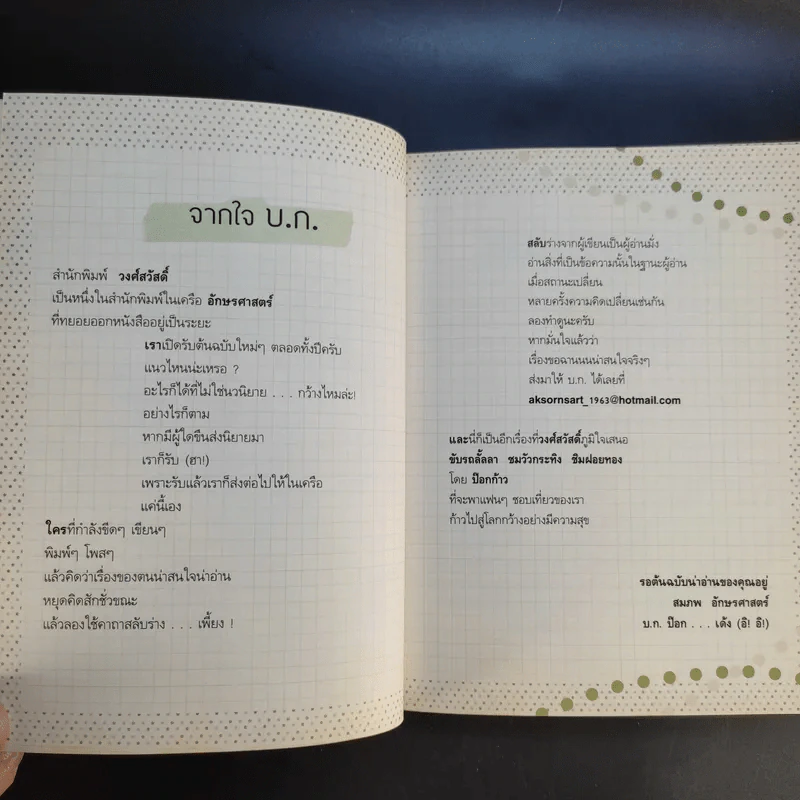 จากใจ บ.ก.
สำนักพิมพ์ วงศ์สวัสดิ์
เป็นหนึ่งในสำนักพิมพ์ในเครือ อักษรศาสตร์
ที่ทยอยออกหนังสืออยู่เป็นระยะ
เราเปิดรับต้นฉบับใหม่ๆ ตลอดทั้งปีครับ
แนวไหนน่ะเหรอ ?
อะไรก็ได้ที่ไม่ใช่นวนิยาย . . . กว้างไหมล่ะ!
อย่างไรก็ตาม
หากมีผู้ใดขืนส่งนิยายมา
เราก็รับ (ฮา!)
เพราะรับแล้วเราก็ส่งต่อไปให้ในเครือ
แค่นี้เอง
ใครที่กำลังขีดๆ เขียนๆ
พิมพ์ๆ โพสๆ
แล้วคิดว่าเรื่องของตนน่าสนใจน่าอ่าน
หยุดคิดสักชั่วขณะ
แล้วลองใช้คาถาสลับร่าง . . . เพี้ยง !
สลับร่างจากผู้เขียนเป็นผู้อ่านมั่ง
อ่านสิ่งที่เป็นข้อความนั้นในฐานะผู้อ่าน
เมื่อสถานะเปลี่ยน
หลายครั้งความคิดเปลี่ยนเช่นกัน
ลองทำดูนะครับ
หากมั่นใจแล้วว่า
เรื่องของฉานนนน่าสนใจจริงๆ
ส่งมาให้ บ.ก. ได้เลยที่
aksornsart_1963@hotmail.com
และนี่ก็เป็นอีกเรื่องที่วงศ์สวัสดิ์ภูมิใจเสนอ
ขับรถลั้ลลา ชมวัวกระทิง ชิมฝอยทอง
โดย ป๊อกก้าว
ที่จะพาแฟนๆ ชอบเที่ยวของเรา
ก้าวไปสู่โลกกว้างอย่างมีความสุข
รอต้นฉบับน่าอ่านของคุณอยู่
สมภพ อักษรศาสตร์
บ.ก. ป๊อก . . . เด้ง (อิ! อิ!)